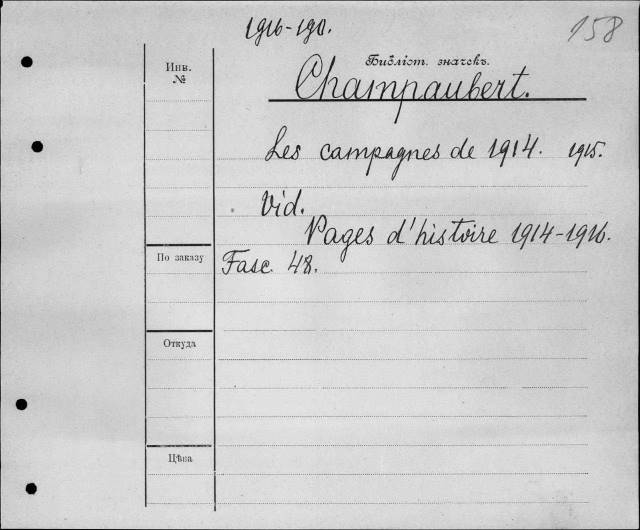 1916-190.
158
Библіот. значекъ.
Инв.
№
Champaubert.
Les campagnes de 1914. 1915.
Vid.
Pages d'histoire 1914-1916.
По заказу
Fasc. 48.
Откуда
Цѣна